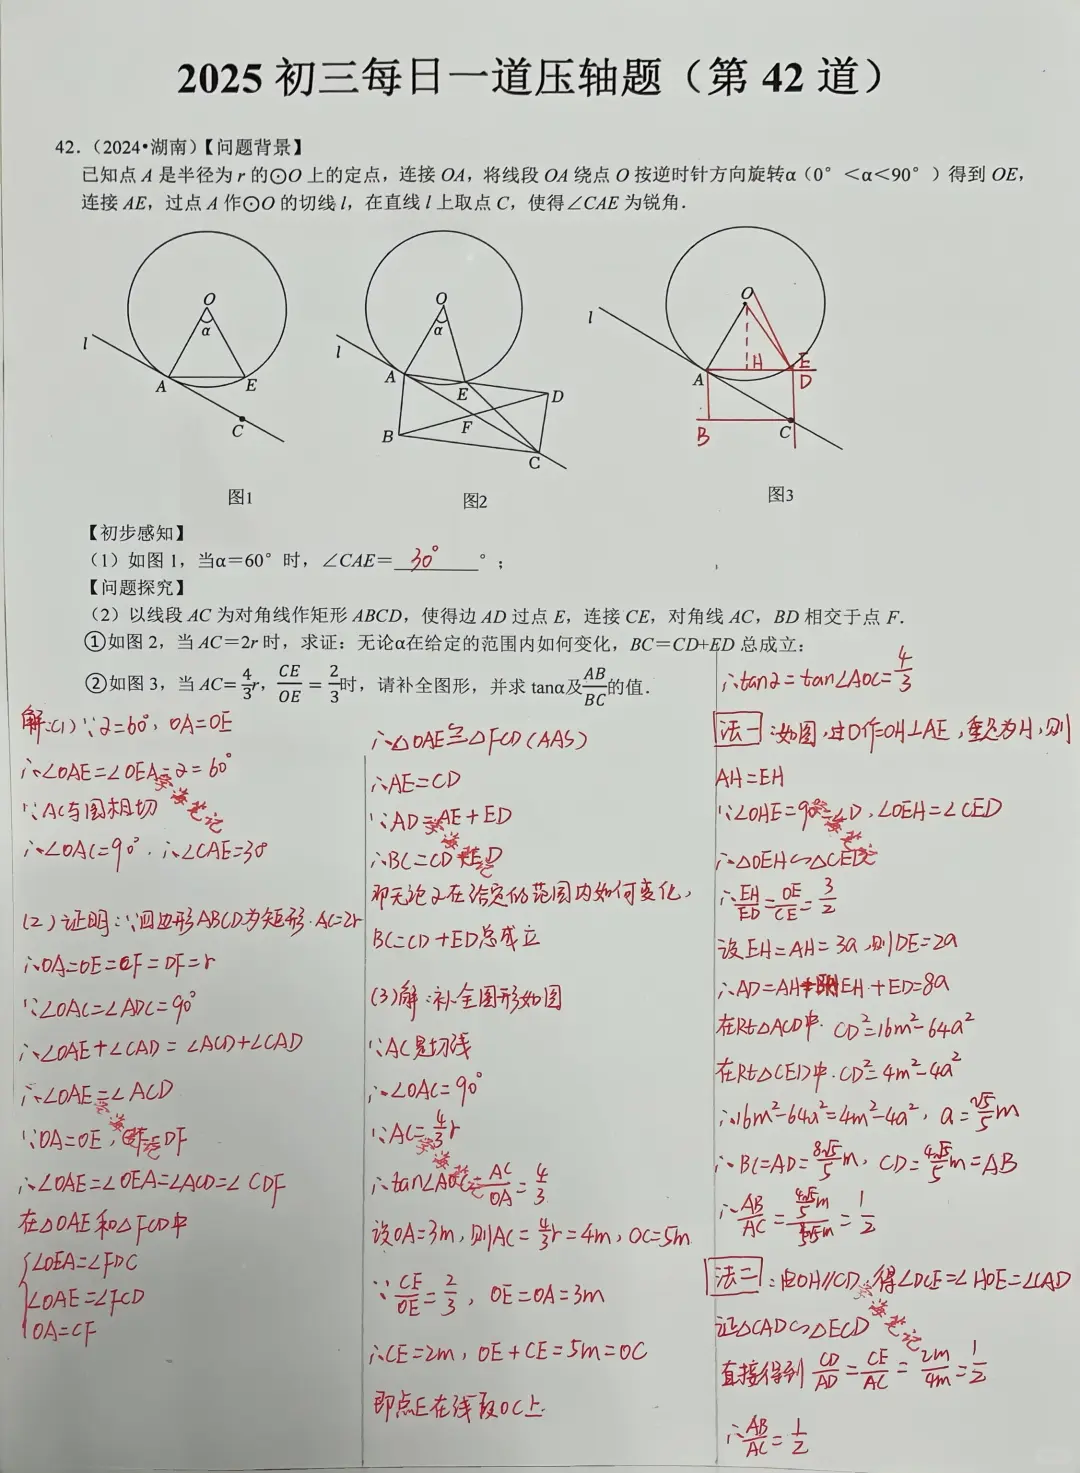 2025 初三每日一道压轴题（第 42 道）
42.（2024•湖南）【问题背景】
已知点 A 是半径为 r 的⊙O 上的定点，连接 OA，将线段 OA 绕点 O 按逆时针方向旋转α（0°＜α＜90°）得到 OE，
连接 AE，过点 A 作⊙O 的切线 l，在直线 l 上取点 C，使得∠CAE 为锐角.
O
α
l
A
E
C
图1
O
α
l
A
E
D
B
F
C
图2
O
l
H
E
A
D
B
C
图3
【初步感知】
（1）如图 1，当α＝60°时，∠CAE＝ 30° °；
【问题探究】
（2）以线段 AC 为对角线作矩形 ABCD，使得边 AD 过点 E，连接 CE，对角线 AC，BD 相交于点 F.
①如图 2，当 AC＝2r 时，求证：无论α在给定的范围内如何变化，BC＝CD+ED 总成立：
②如图 3，当 AC=4/3r，CE/OE=2/3时，请补全图形，并求 tanα及AB/BC的值.
解:(1)∵α=60°, OA=OE
∴∠OAE=∠OEA=α=60°
∵AC与圆相切
∴∠OAC=90°. ∴∠CAE=30°
(2)证明:∵四边形ABCD为矩形.AC=2r
∴OA=OE=CF=DF=r
∵∠OAC=∠ADC=90°
∴∠OAE+∠CAD=∠ACD+∠CAD
∴∠OAE=∠ACD
∵OA=OE, CF=DF
∴∠OAE=∠OEA=∠ACD=∠CDF
在△OAE和△FCD中
∠OEA=∠FDC
∠OAE=∠FCD
OA=CF
∴△OAE≌△FCD(AAS)
∴AE=CD
∵AD=AE+ED
∴BC=CD+ED
即无论α在给定的范围内如何变化,
BC=CD+ED总成立
(3)解:补全图形如图
∵AC是切线
∴∠OAC=90°
∵AC=4/3r
∴tan∠AOC=AC/OA=4/3
设OA=3m,则AC=4/3r=4m, OC=5m
∵CE/OE=2/3, OE=OA=3m
∴CE=2m, OE+CE=5m=OC
即点E在线段OC上.
∴tanα=tan∠AOC=4/3
法一:如图,过O作OH⊥AE,垂足为H,则
AH=EH
∵∠OHE=90°=∠D,∠OEH=∠CED
∴△OEH∽△CED
∴EH/ED=OE/CE=3/2
设EH=AH=3a,则DE=2a
∴AD=AH+EH+ED=8a
在Rt△ACD中. CD²=16m²-64a²
在Rt△CED中.CD²=4m²-4a²
∴16m²-64a²=4m²-4a², a=√5/5m
∴BC=AD=8√5/5m, CD=4√5/5m=AB
∴AB/AC=(4√5/5m)/(8√5/5m)=1/2
法二:由OH//CD,得∠DCE=∠HOE=∠CAD
证△CAD∽△ECD
直接得到CD/AD=CE/AC=2m/4m=1/2
∴AB/AC=1/2
学海笔记
学海笔记
学海笔记
学海笔记
学海笔记
学海笔记